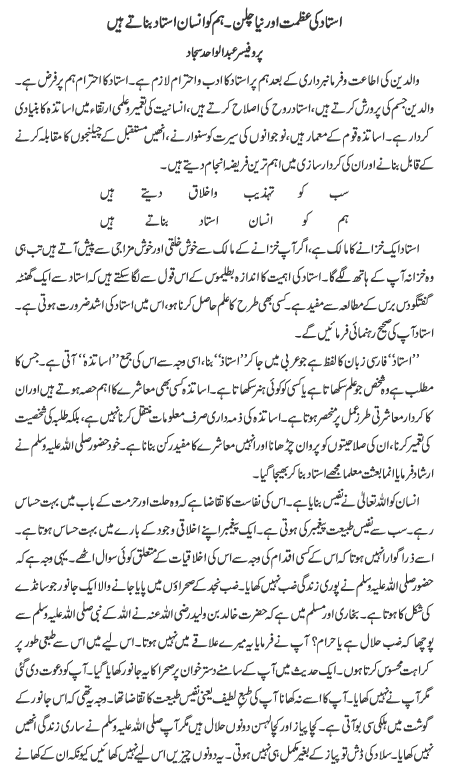 استاد کی عظمت اور نیا چلن۔ ہم کو انسان استاد بناتے ہیں
پروفیسر عبدالواحد سجاد
والدین کی اطاعت و فرمانبرداری کے بعد ہم پر استاد کا ادب و احترام لازم ہے۔ استاد کا احترام ہم پر فرض ہے۔
والدین جسم کی پرورش کرتے ہیں، استاد روح کی اصلاح کرتے ہیں، انسانیت کی تعمیر و علمی ارتقاء میں اساتذہ کا بنیادی
کردار ہے۔ اساتذہ قوم کے معمار ہیں، نوجوانوں کی سیرت کو سنوارنے، انھیں مستقبل کے چیلنجوں کا مقابلہ کرنے
کے قابل بنانے اور ان کی کردار سازی میں اہم ترین فریضہ انجام دیتے ہیں۔
سب کو تہذیب و اخلاق دیتے ہیں
ہم کو انسان استاد بناتے ہیں
استاد ایک خزانے کا مالک ہے، اگر آپ خزانے کے مالک سے خوش خلقی اور خوش مزاجی سے پیش آتے ہیں تب ہی
وہ خزانہ آپ کے ہاتھ لگے گا۔ استاد کی اہمیت کا اندازہ بطلیموس کے اس قول سے لگا سکتے ہیں کہ استاد سے ایک گھنٹہ
گفتگو دس برس کے مطالعہ سے مفید ہے۔ کسی بھی طرح کا علم حاصل کرنا ہو، اس میں استاد کی اشد ضرورت ہوتی ہے۔
استاد آپ کی صحیح رہنمائی فرمائیں گے۔
’’استاد‘‘ فارسی زبان کا لفظ ہے جو عربی میں جا کر ’’استاذ‘‘ بنا، اسی وجہ سے اس کی جمع ’’اساتذہ‘‘ آتی ہے۔ جس کا
مطلب ہے وہ شخص جو علم سکھاتا ہے یا کسی کو کوئی ہنر سکھاتا ہے۔ اساتذہ کسی بھی معاشرے کا اہم حصہ ہوتے ہیں اور ان
کا کردار معاشرتی طرز عمل پر منحصر ہوتا ہے۔ اساتذہ کی ذمہ داری صرف معلومات منتقل کرنا نہیں ہے، بلکہ طلبہ کی شخصیت
کی تعمیر کرنا، ان کی صلاحیتوں کو پروان چڑھانا اور انہیں معاشرے کا مفید رکن بنانا ہے۔ خود حضور صلی اللہ علیہ وسلم نے
ارشاد فرمایا انما بعثت معلما مجھے استاد بنا کر بھیجا گیا۔
انسان کو اللہ تعالیٰ نے نفیس بنایا ہے۔ اس کی نفاست کا تقاضا ہے کہ وہ حلت اور حرمت کے باب میں بہت حساس
رہے۔ سب سے نفیس طبیعت پیغمبر کی ہوتی ہے۔ ایک پیغمبر اپنے اخلاقی وجود کے بارے میں بہت حساس ہوتا ہے۔
اسے ذرا گوارا نہیں ہوتا کہ اس کے کسی اقدام کی وجہ سے اس کی اخلاقیات کے متعلق کوئی سوال اٹھے۔ یہی وجہ ہے کہ
حضور صلی اللہ علیہ وسلم نے پوری زندگی ضب نہیں کھایا۔ ضب نجد کے صحراؤں میں پایا جانے والا ایک جانور جو سانڈے
کی شکل کا ہوتا ہے۔ بخاری اور مسلم میں ہے کہ حضرت خالد بن ولید رضی اللہ عنہ نے اللہ کے نبی صلی اللہ علیہ وسلم سے
پوچھا کہ ضب حلال ہے یا حرام؟ آپ نے فرمایا یہ میرے علاقے میں نہیں ہوتا۔ اس لیے میں اس سے طبعی طور پر
کراہت محسوس کرتا ہوں۔ ایک حدیث میں آپ کے سامنے دسترخوان پر صحرا کا یہ جانور کھایا گیا۔ آپ کو دعوت دی گئی
مگر آپ نے نہیں کھایا۔ آپ کا اسے نہ کھانا آپ کی طبع لطیف یعنی نفیس طبیعت کا تقاضا تھا۔ وجہ یہ تھی کہ اس جانور کے
گوشت میں ہلکی سی بو آتی ہے۔ کچا پیاز اور کچا لہسن دونوں حلال ہیں مگر آپ صلی اللہ علیہ وسلم نے ساری زندگی انھیں
نہیں کھایا۔ سلاد کی ڈش تو پیاز کے بغیر مکمل ہی نہیں ہوتی۔ یہ دونوں چیزیں اس لیے نہیں کھائیں کیونکہ ان کے کھانے